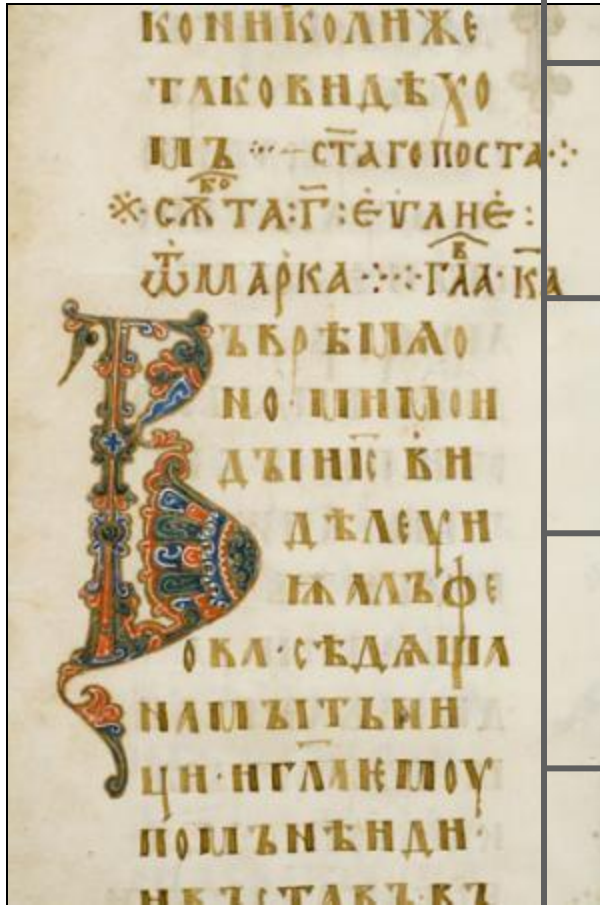 кониколиже
таковидѣхо
мъ ·:· — ст҃агопоста·:·
※·сѫ бо та:г҃:еѵⷢ҇лие:
ѿмарка·:·:·гл в а·к҃а
Въврѣмѧо
но·мимои
дꙑис҃ ви
дѣлеѵи
ꙗалъфе
ова·сѣдѧща
намꙑтьни
ци·игл҃аѥмоу
помънѣиди·
ивъставъ·въ